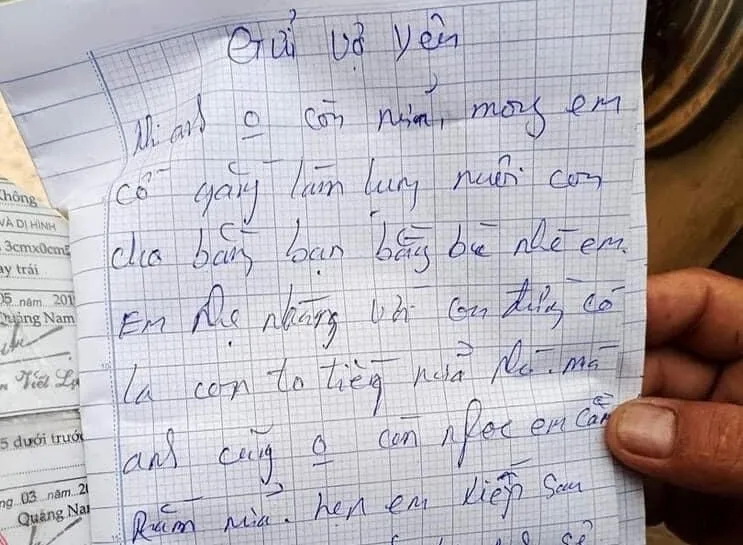 Gửi vợ Yên
Khi anh o còn nữa, mong em
cố gắng làm lụng nuôi con
cho bằng bạn bằng bè nhé em.
Em nhẹ nhàng với con đừng có
la con to tiếng nữa nhé. mà
anh cũng o còn em cằn
nhằn nữa. hẹn em kiếp sau
Không
VÀ DỊ HÌNH
ay trái
05 năm 201
Quảng Nam
5 dưới trước
03 năm 2
Quảng Na